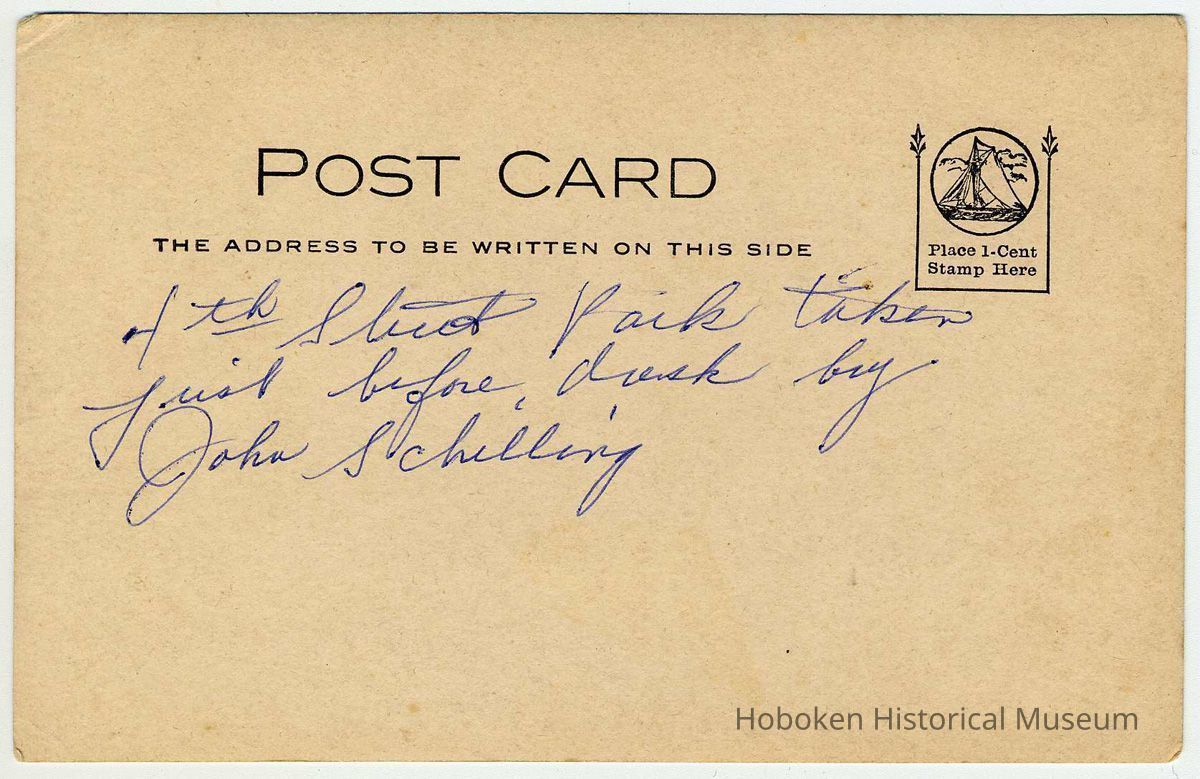 POST CARD
THE ADDRESS TO BE WRITTEN ON THIS SIDE
Place 1-Cent
Stamp Here
4th Street Park taken
just before dusk by
John Schilling
Hoboken Historical Museum